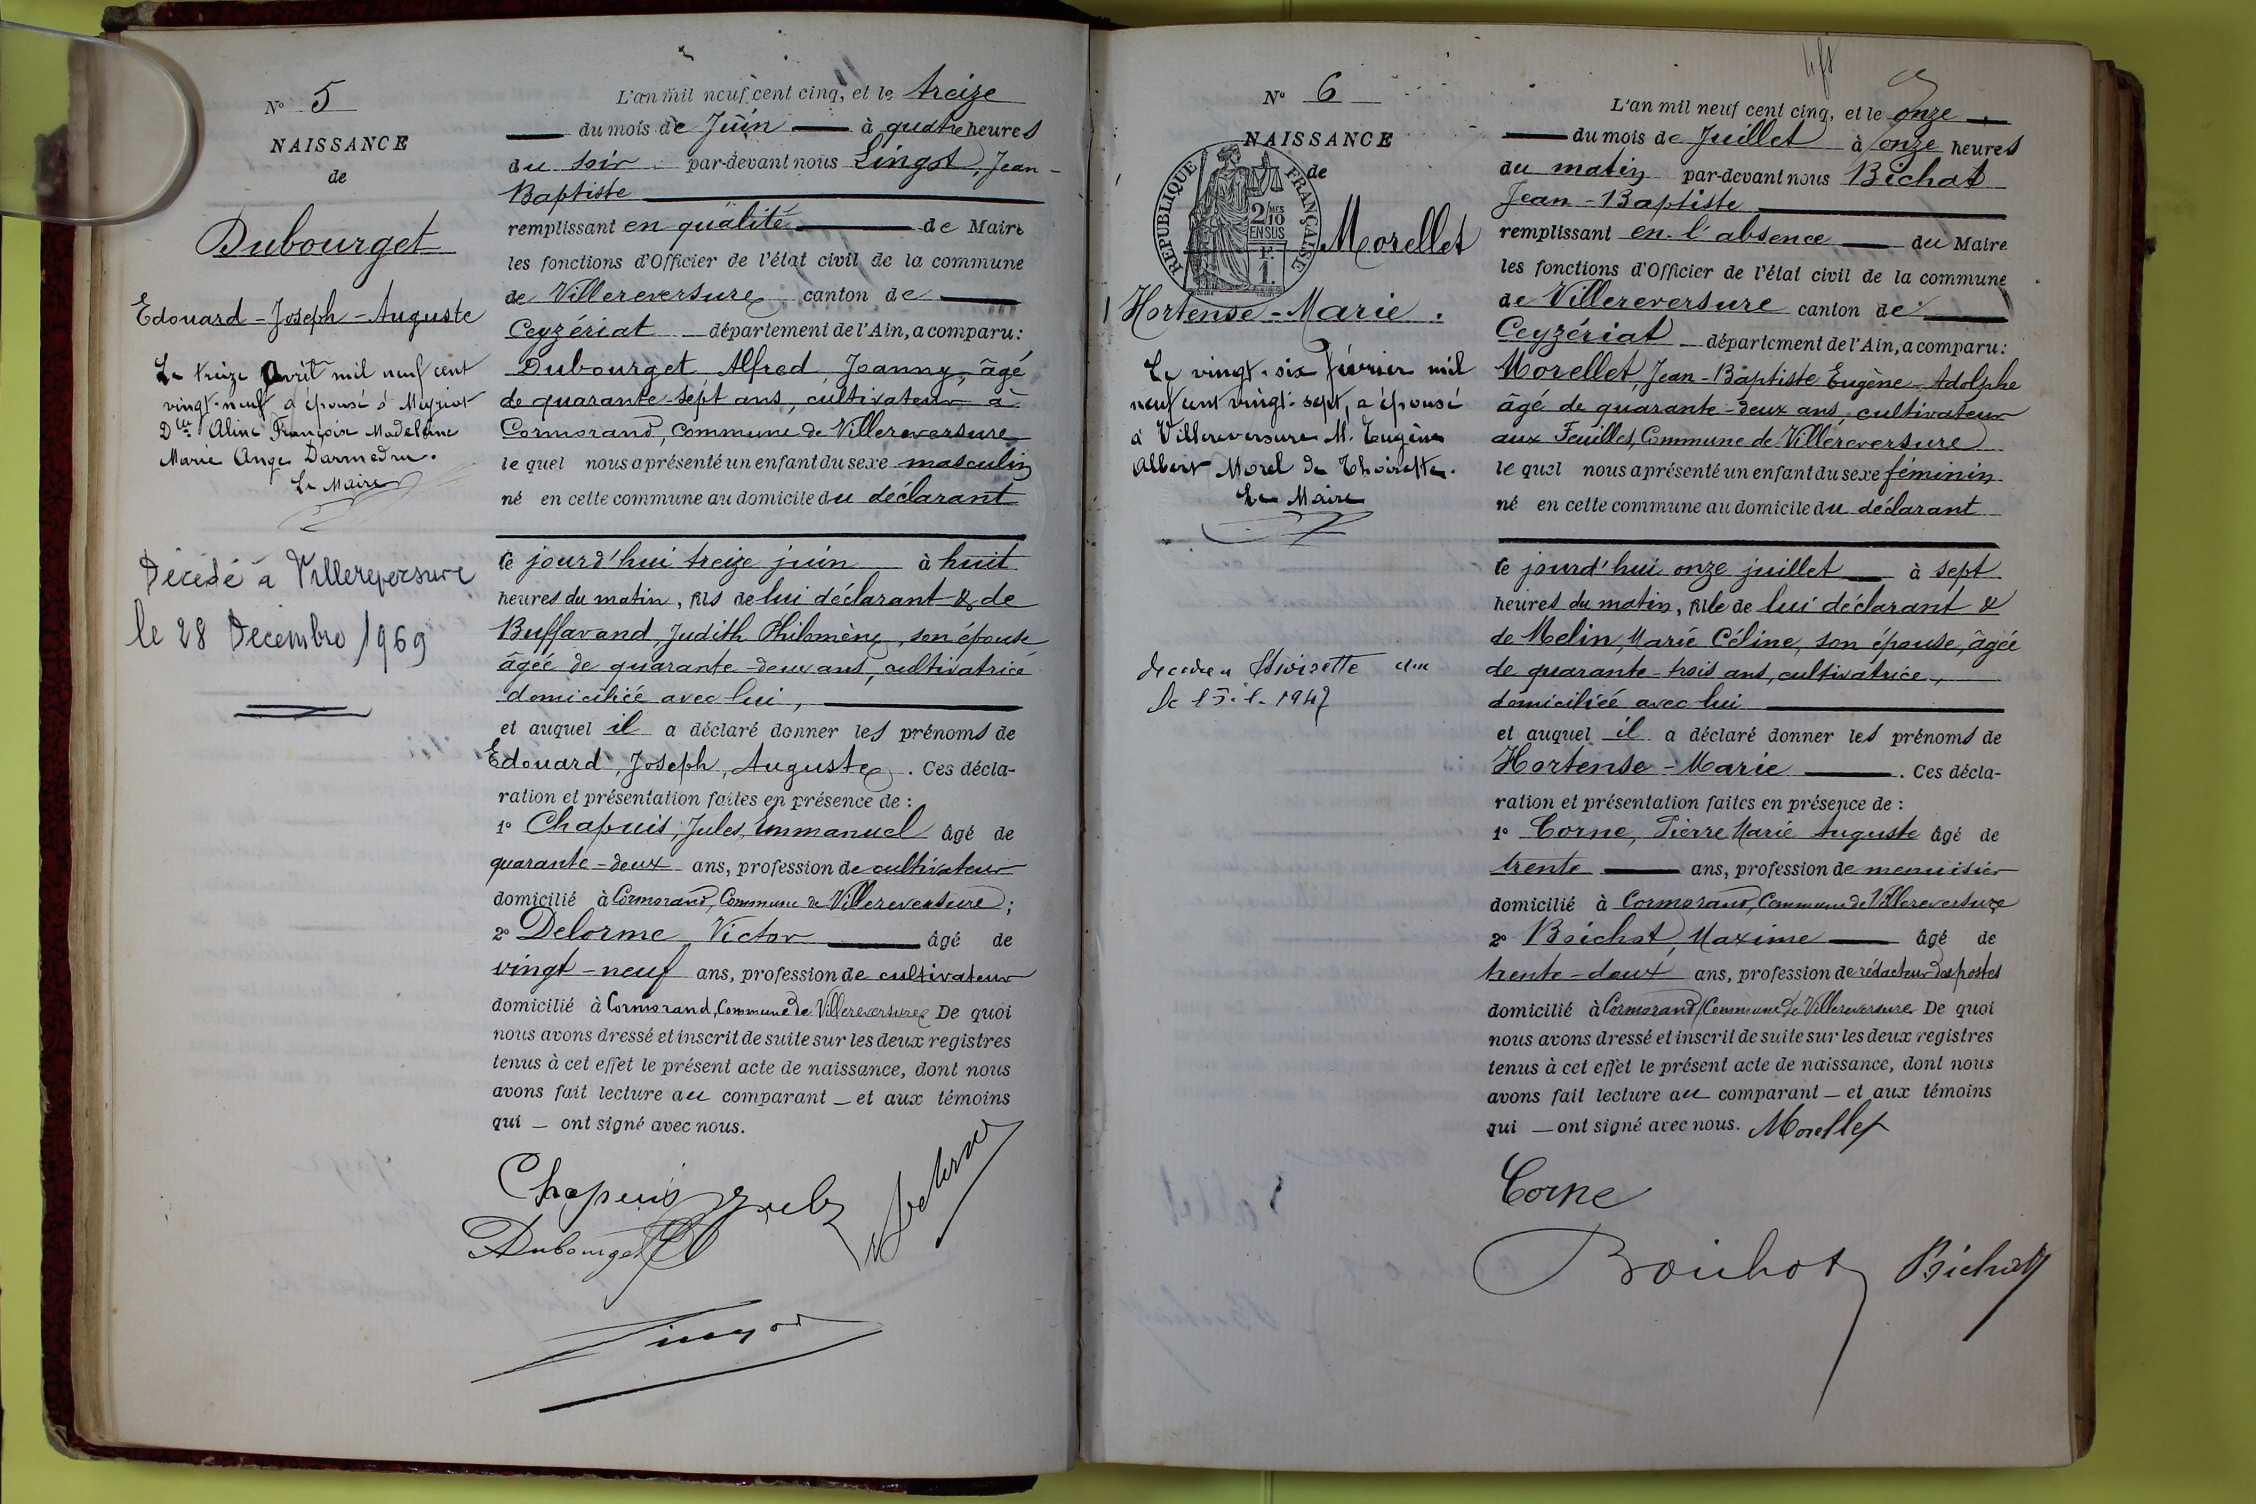 N° 5
NAISSANCE
de
Dubourget
Edouard-Joseph-Auguste
Le treize Avril mil neuf cent
vingt-neuf a épousé à Meyriat
Dlle Aline Françoise Madeleine
Marie Ange Darmedru.
Le Maire
Décédé à Villereversure
le 28 Décembre 1969
L'an mil neuf cent cinq, et le treize
du mois de Juin à quatre heures
du soir par-devant nous Lingot, Jean-
Baptiste
remplissant en qualité de Maire
les fonctions d'Officier de l'état civil de la commune
de Villereversure canton de
Ceyzériat département de l'Ain, a comparu:
Dubourget Alfred Joanny, âgé
de quarante-sept ans, cultivateur à
Cormorand, commune de Villereversure
le quel nous a présenté un enfant du sexe masculin
né en cette commune au domicile du déclarant
ce jourd'hui treize juin à huit
heures du matin, fils de lui déclarant & de
Buffavand, Judith Philomène, son épouse
âgée de quarante-deux ans, cultivatrice
domiciliée avec lui,
et auquel il a déclaré donner les prénoms de
Edouard, Joseph, Auguste. Ces décla-
ration et présentation faites en présence de :
1° Chapuis, Jules, Emmanuel âgé de
quarante-deux ans, profession de cultivateur
domicilié à Cormorand, Commune de Villereversure;
2° Delorme Victor âgé de
vingt-neuf ans, profession de cultivateur
domicilié à Cormorand, Commune de Villereversure De quoi
nous avons dressé et inscrit de suite sur les deux registres
tenus à cet effet le présent acte de naissance, dont nous
avons fait lecture au comparant — et aux témoins
qui — ont signé avec nous.
Chapuis Jules
Delorme
Dubourget
Lingot
N° 6
NAISSANCE
de
RÉPUBLIQUE FRANÇAISE
2/10 MES
EN SUS
1 F.
Morellet
Hortense-Marie.
Le vingt-six Février mil
neuf cent vingt-sept, a épousé
à Villereversure M. Eugène
Albert Morel de Thoirette.
Le Maire
décédée à Thoirette
L'an mil neuf cent cinq, et le onze
du mois de Juillet à onze heures
du matin par-devant nous Bichat
Jean-Baptiste
remplissant en l'absence du Maire
les fonctions d'Officier de l'état civil de la commune
de Villereversure canton de
Ceyzériat département de l'Ain, a comparu:
Morellet, Jean-Baptiste Eugène-Adolphe
âgé de quarante-deux ans, cultivateur
aux Feuilles, Commune de Villereversure
le quel nous a présenté un enfant du sexe féminin
né en cette commune au domicile du déclarant
ce jourd'hui onze juillet à sept
heures du matin, fille de lui déclarant &
de Melin, Marie Céline, son épouse, âgée
de quarante-trois ans, cultivatrice,
domiciliée avec lui
et auquel il a déclaré donner les prénoms de
Hortense-Marie. Ces décla-
ration et présentation faites en présence de :
1° Corne, Pierre Marie Auguste âgé de
trente ans, profession de menuisier
domicilié à Cormorand, Commune de Villereversure
2° Boichot, Maxime âgé de
trente-deux ans, profession de rédacteur des postes
domicilié à Cormorand, Commune de Villereversure De quoi
nous avons dressé et inscrit de suite sur les deux registres
tenus à cet effet le présent acte de naissance, dont nous
avons fait lecture au comparant — et aux témoins
qui — ont signé avec nous. Morellet
Corne
Boichot Bichat